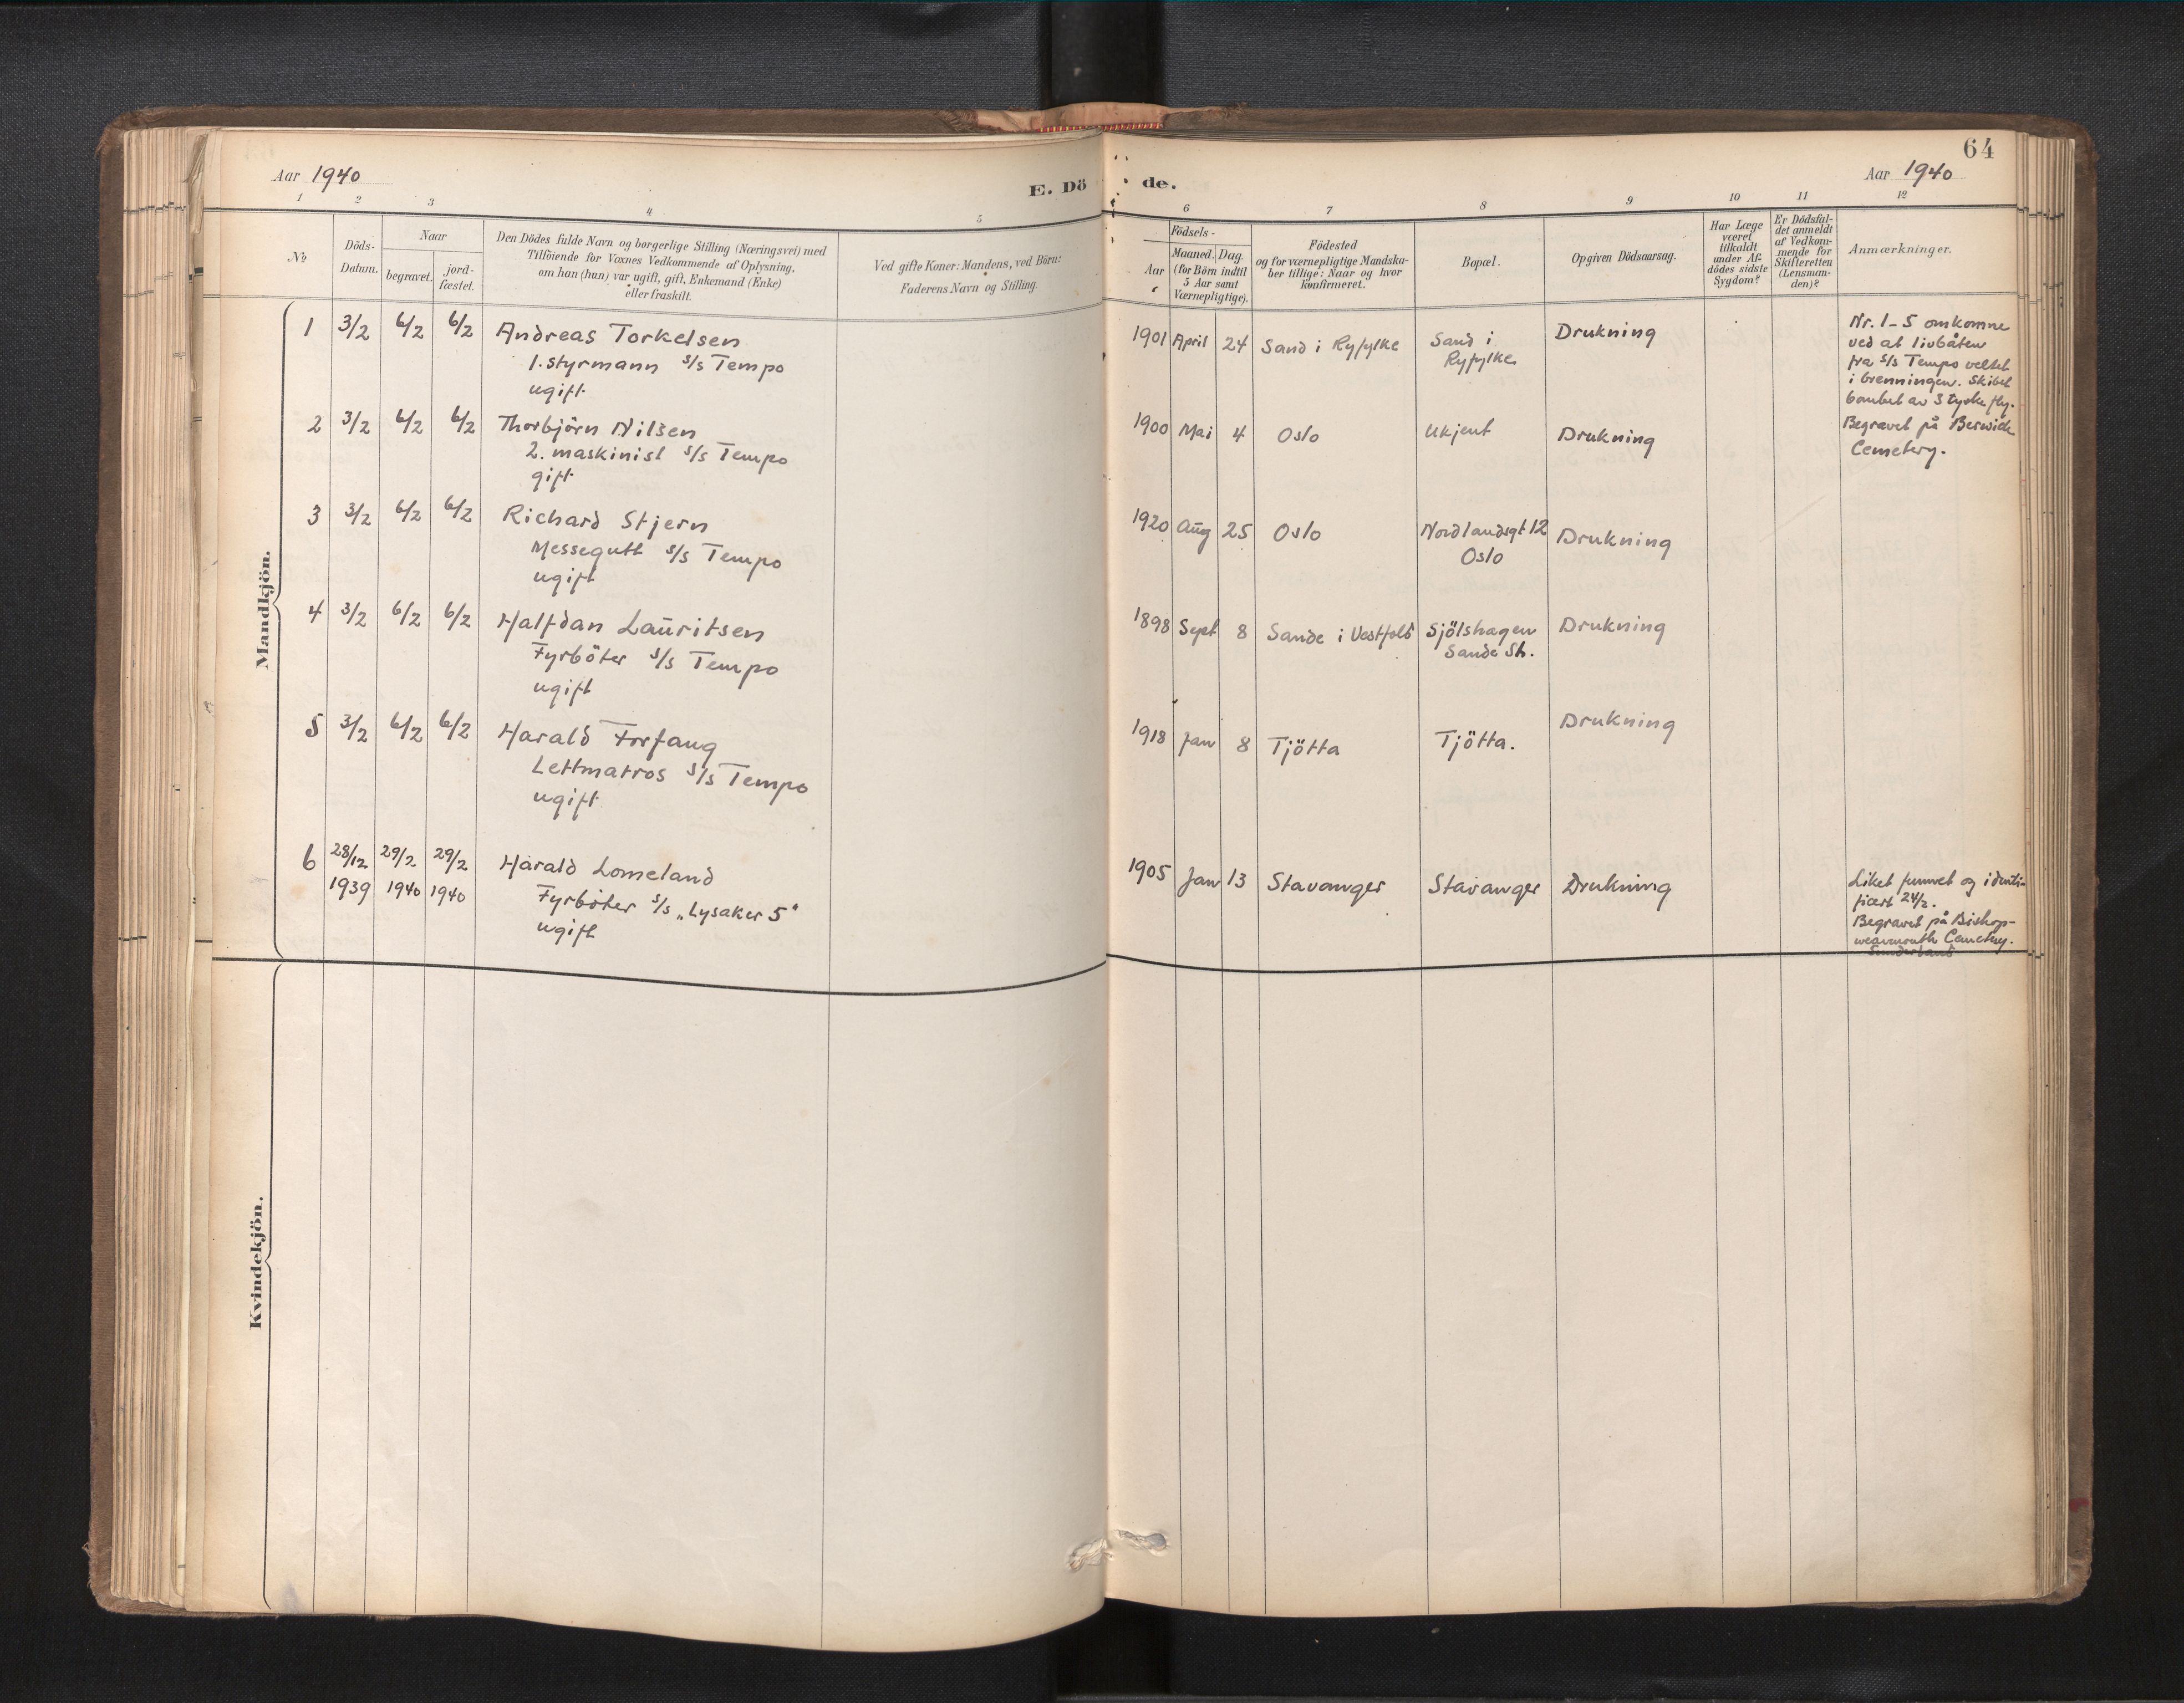 64
Aar 1940
E. Dö
de.
Aar 1940
1 2 3 4 5
6 7 8 9 10 11 12
№
Döds-
Datum.
Naar
begravet.
jord-
fæstet.
Den Dödes fulde Navn og borgerlige Stilling (Næringsvei) med
Tilföiende for Voxnes Vedkommende af Oplysning,
om han (hun) var ugift, gift, Enkemand (Enke)
eller fraskilt.
Ved gifte Koner: Mandens, ved Börn:
Faderens Navn og Stilling.
Födsels-
Aar
Maaned. Dag.
(for Börn indtil
5 Aar samt
Værnepligtige).
Födested
og for værnepligtige Mandska-
ber tillige: Naar og hvor
konfirmeret.
Bopæl.
Opgiven Dödsaarsag.
Har Læge
været
tilkaldt
under Af-
dödes sidste
Sygdom?
Er Dödsfal-
det anmeldt
af Vedkom-
mende for
Skifteretten
(Lensman-
den)?
Anmærkninger.
Mandkjön.
1 3/2 6/2 6/2 Andreas Torkelsen
1. styrmann s/s Tempo
ugift
1901 April 24 Sand i Ryfylke
Sand i
Ryfylke
Drukning
Nr. 1-5 omkomne
ved at livbåten
fra s/s Tempo veltet
i brenningen. Skibet
bombet av 3 tyske fly.
Begravet på Berwick
Cemetery.
2 3/2 6/2 6/2 Thorbjörn Nilsen
2. maskinist s/s Tempo
gift
1900 Mai 4 Oslo Ukjent Drukning
3 3/2 6/2 6/2 Richard Stjern
Messegutt s/s Tempo
ugift
1920 Aug 25 Oslo
Nordlandsgt 12
Oslo
Drukning
4 3/2 6/2 6/2 Halfdan Lauritsen
Fyrböter s/s Tempo
ugift
1898 Sept 8 Sande i Vestfold
Sjölshagen
Sande St.
Drukning
5 3/2 6/2 6/2 Harald Forfang
Lettmatros s/s Tempo
ugift
1918 Jan 8 Tjötta Tjötta. Drukning
6 28/12 29/2 29/2 Harald Lomeland
1939 1940 1940
Fyrböter s/s „Lysaker 5"
ugift
1905 Jan 13 Stavanger Stavanger Drukning
Liket funnet og identi-
fisert 24/2.
Begravet på Bishop-
wearmouth Cemetery.
Sunderland
Kvindekjön.